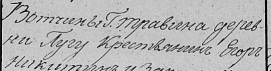 Вотчины Гтравина дерев-
ни Лугу Крестьянинъ Егоръ
Никитинъ и